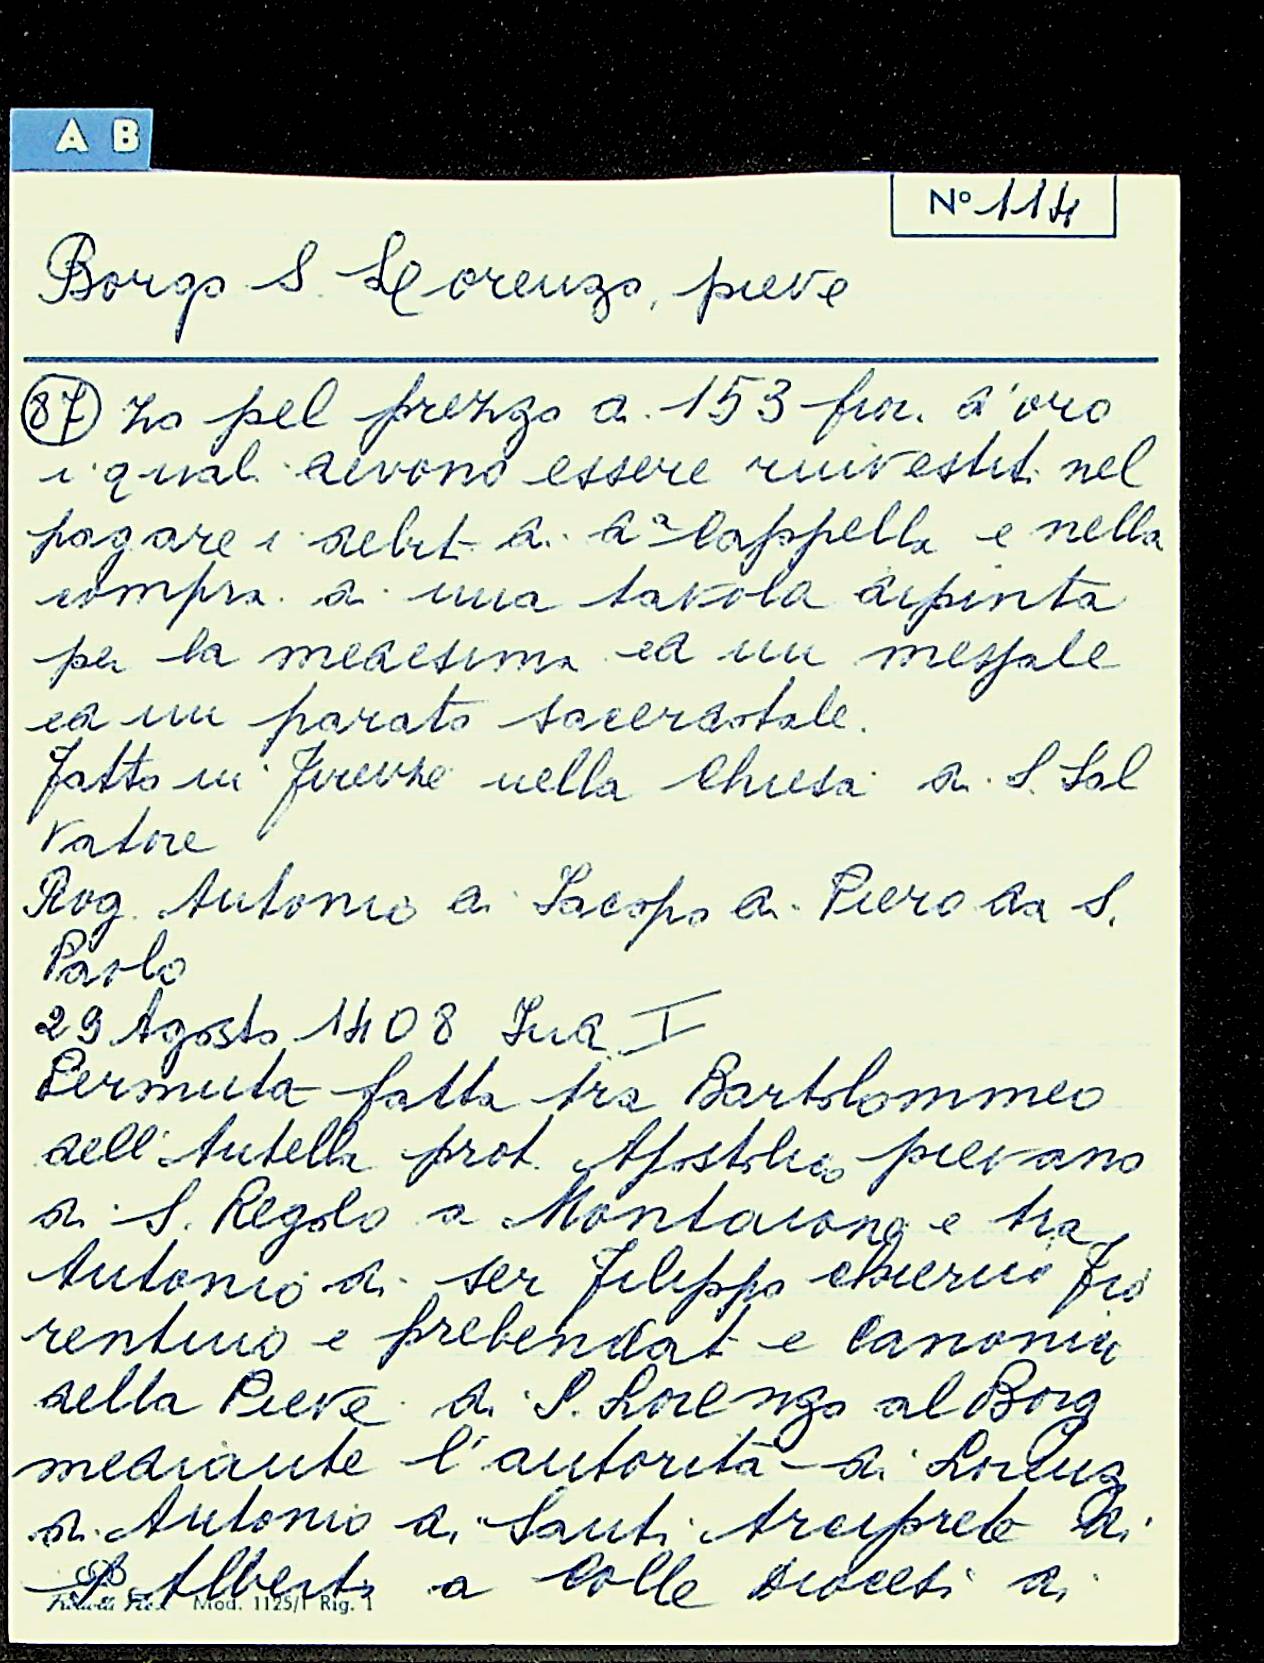 A B
N° 114
Borgo S. Lorenzo, pieve
87 zo pel prezzo di 153 fior. d'oro
i quali devono essere rinvestiti nel
pagare i debiti di da Cappella e nella
compra di una tavola dipinta
per la medesima ed un messale
ed un parato sacerdotale.
Fatto in Firenze nella Chiesa di S. Sal
vatore
Rog. Antonio di Iacopo di Piero da S.
Paolo
29 Agosto 1408 Ind I
Permuta fatta tra Bartolommeo
dell'Antella prot. Apostolico pievano
di S. Regolo a Montaione e tra
Antonio di ser Filippo chierico Fio
rentino e prebendati e canonico
della Pieve di S. Lorenzo al Borg
mediante l'autorità di Lorenz
di Antonio di Santi Arciprete di
S. Alberto a Colle diocesi di
Mod. 1125/1 Rig. 1